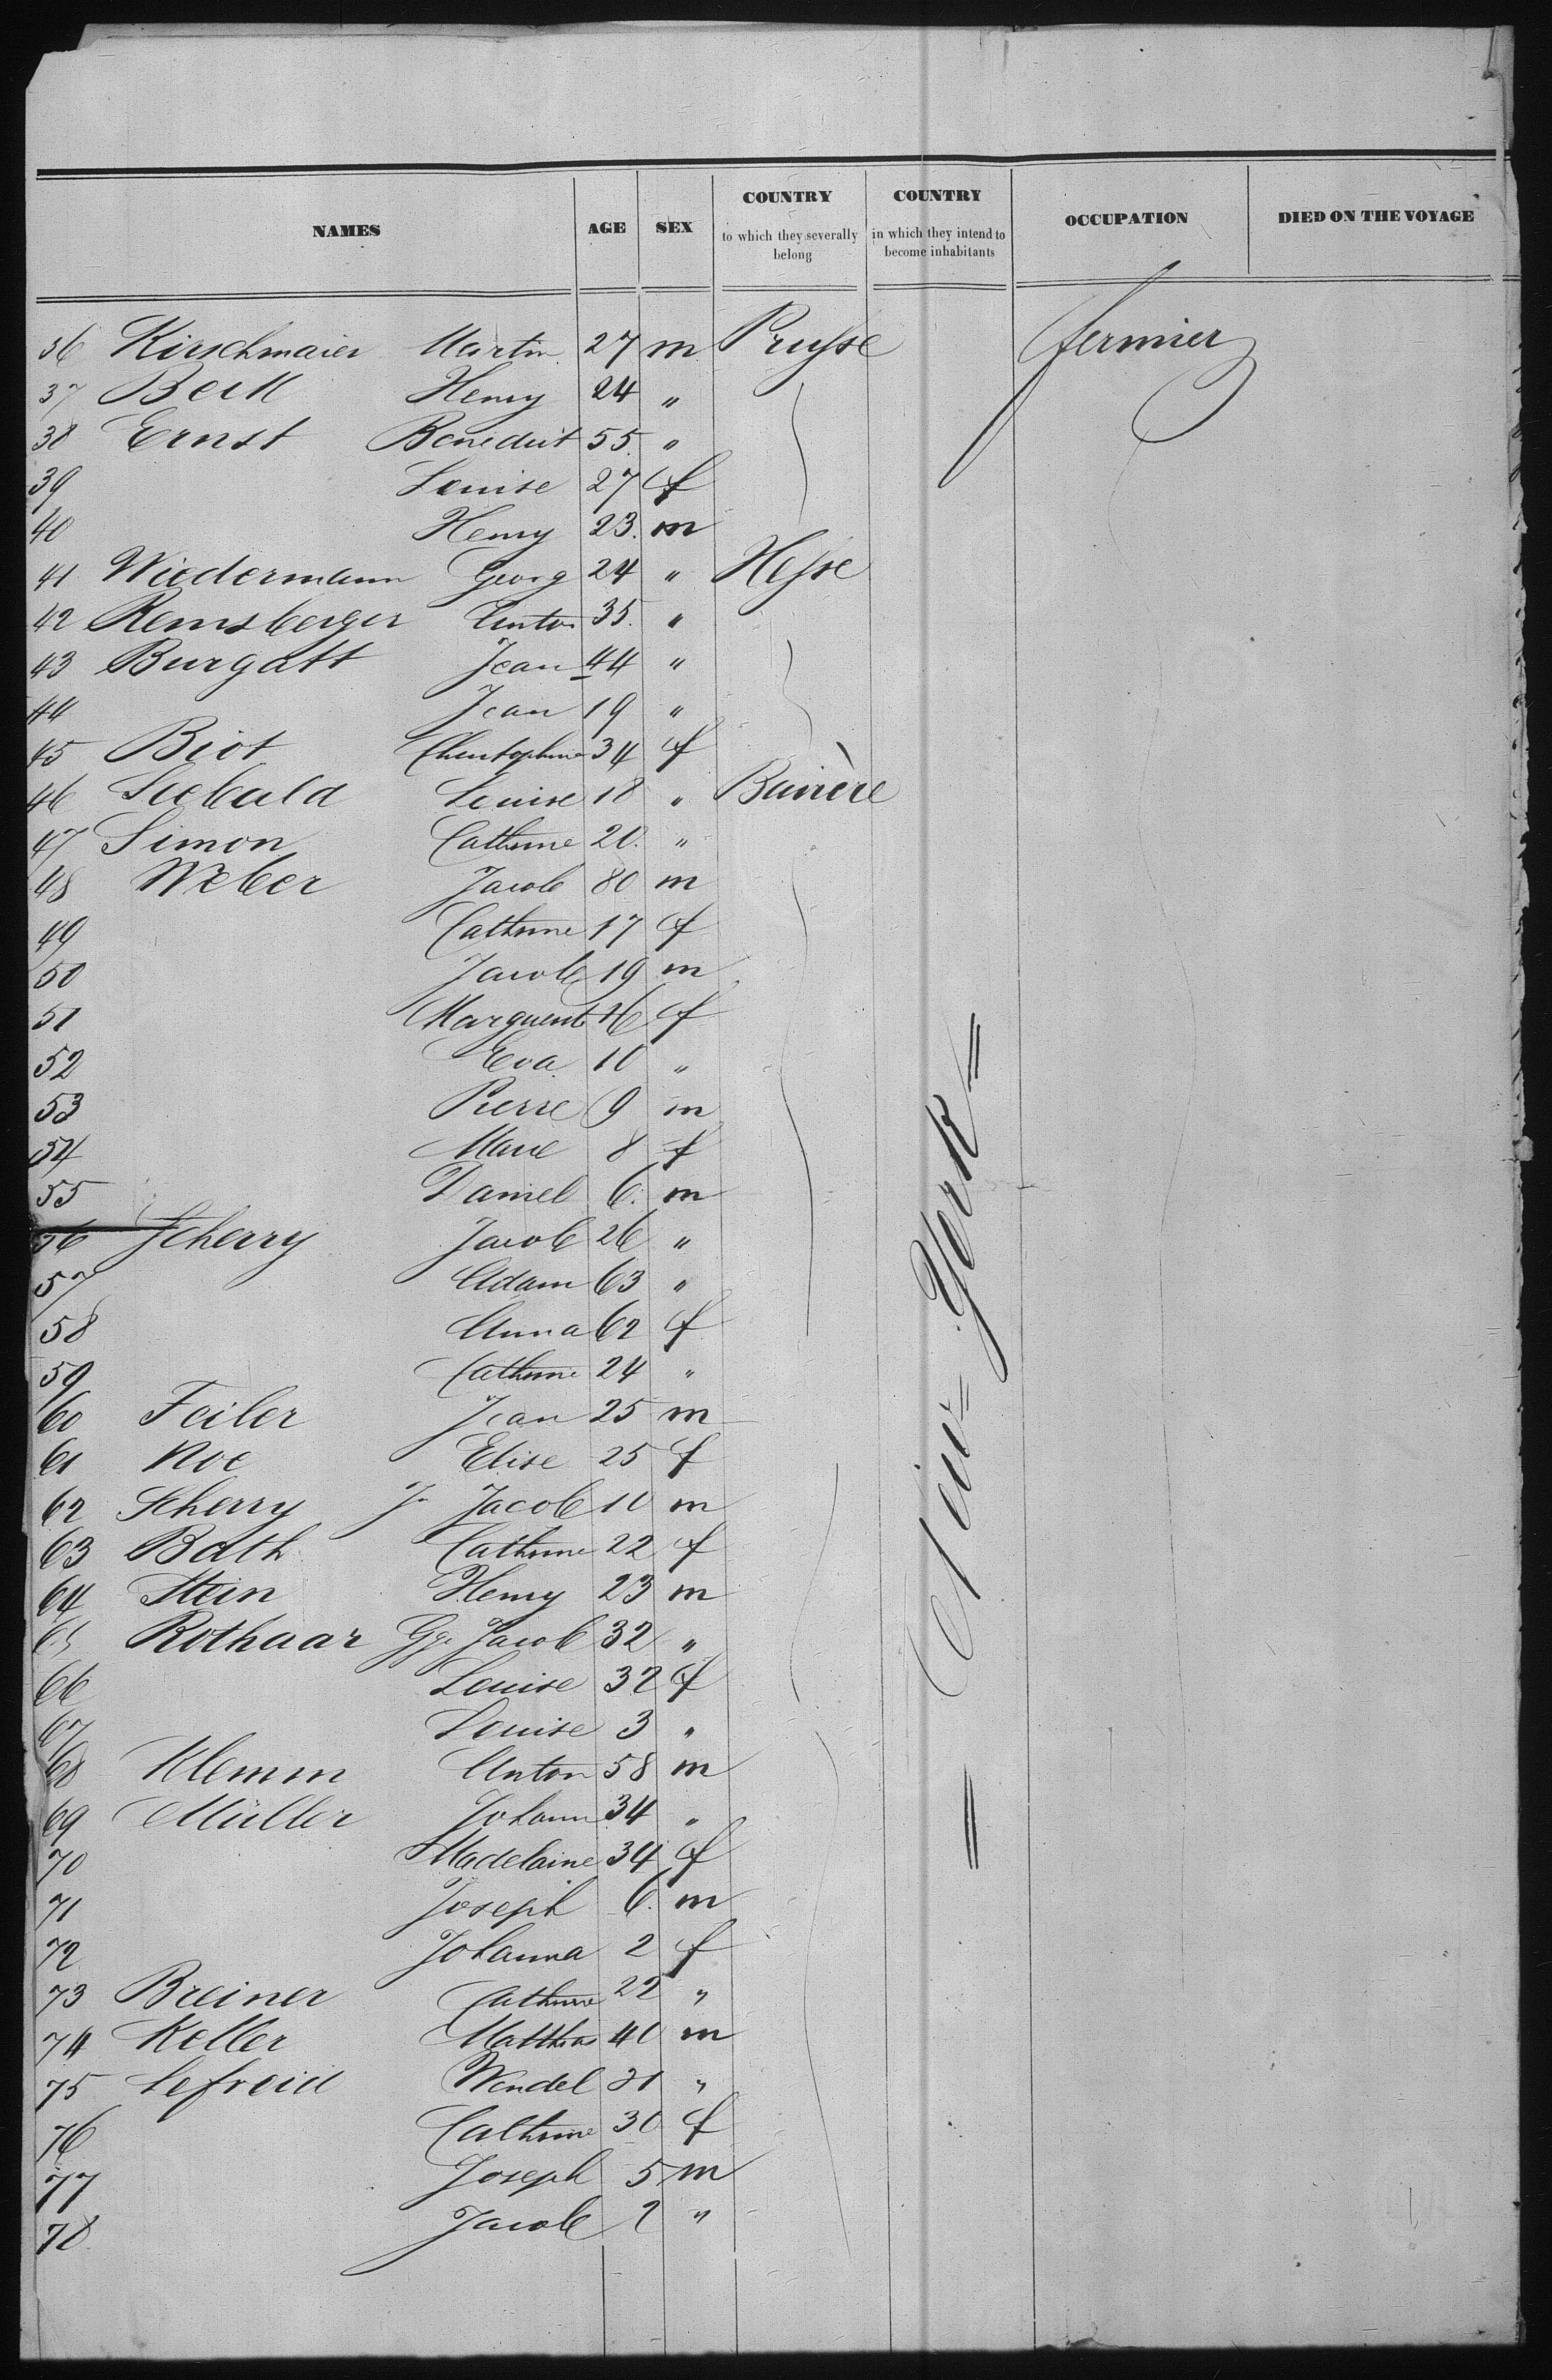 NAMES AGE SEX COUNTRY to which they severally belong COUNTRY in which they intend to become inhabitants OCCUPATION DIED ON THE VOYAGE
36 Kirschmaier Martin 27 m Prusse fermier
37 Beck Henry 24 "
38 Ernst Benedict 55 "
39 Louise 27 f
40 Henry 23 m
41 Wiedermann Georg 24 " Hesse
42 Remsberger Anton 35 "
43 Burgatt Jean 44 "
44 Jean 19 "
45 Biot Christophine 34 f
46 Seebald Louise 18 " Bavière
47 Simon Cathrine 20 "
48 Weber Jacob 80 m
49 Cathrine 17 f
50 Jacob 19 m
51 Marguerit 16 f
52 Eva 10 "
53 Pierre 9 m
54 Marie 8 f
55 Daniel 6 m
56 Scherry Jacob 26 "
57 Adam 63 "
58 Anna 62 f
59 Cathrine 24 "
60 Feiler Jean 25 m
61 Noe Elise 25 f
62 Scherry Jacob 10 m
63 Bath Cathrine 22 f
64 Stein Henry 23 m
65 Rothaar Gg. Jacob 32 "
66 Louise 32 f
67 Louise 3 "
68 Klemm Anton 58 m
69 Müller Johann 34 "
70 Madelaine 34 f
71 Joseph 6 m
72 Johanna 2 f
73 Breiner Cathrine 22 "
74 Keller Matthias 40 m
75 Lefroid Wendel 31 "
76 Cathrine 30 f
77 Joseph 5 m
78 Jacob 2 "
= New-York =